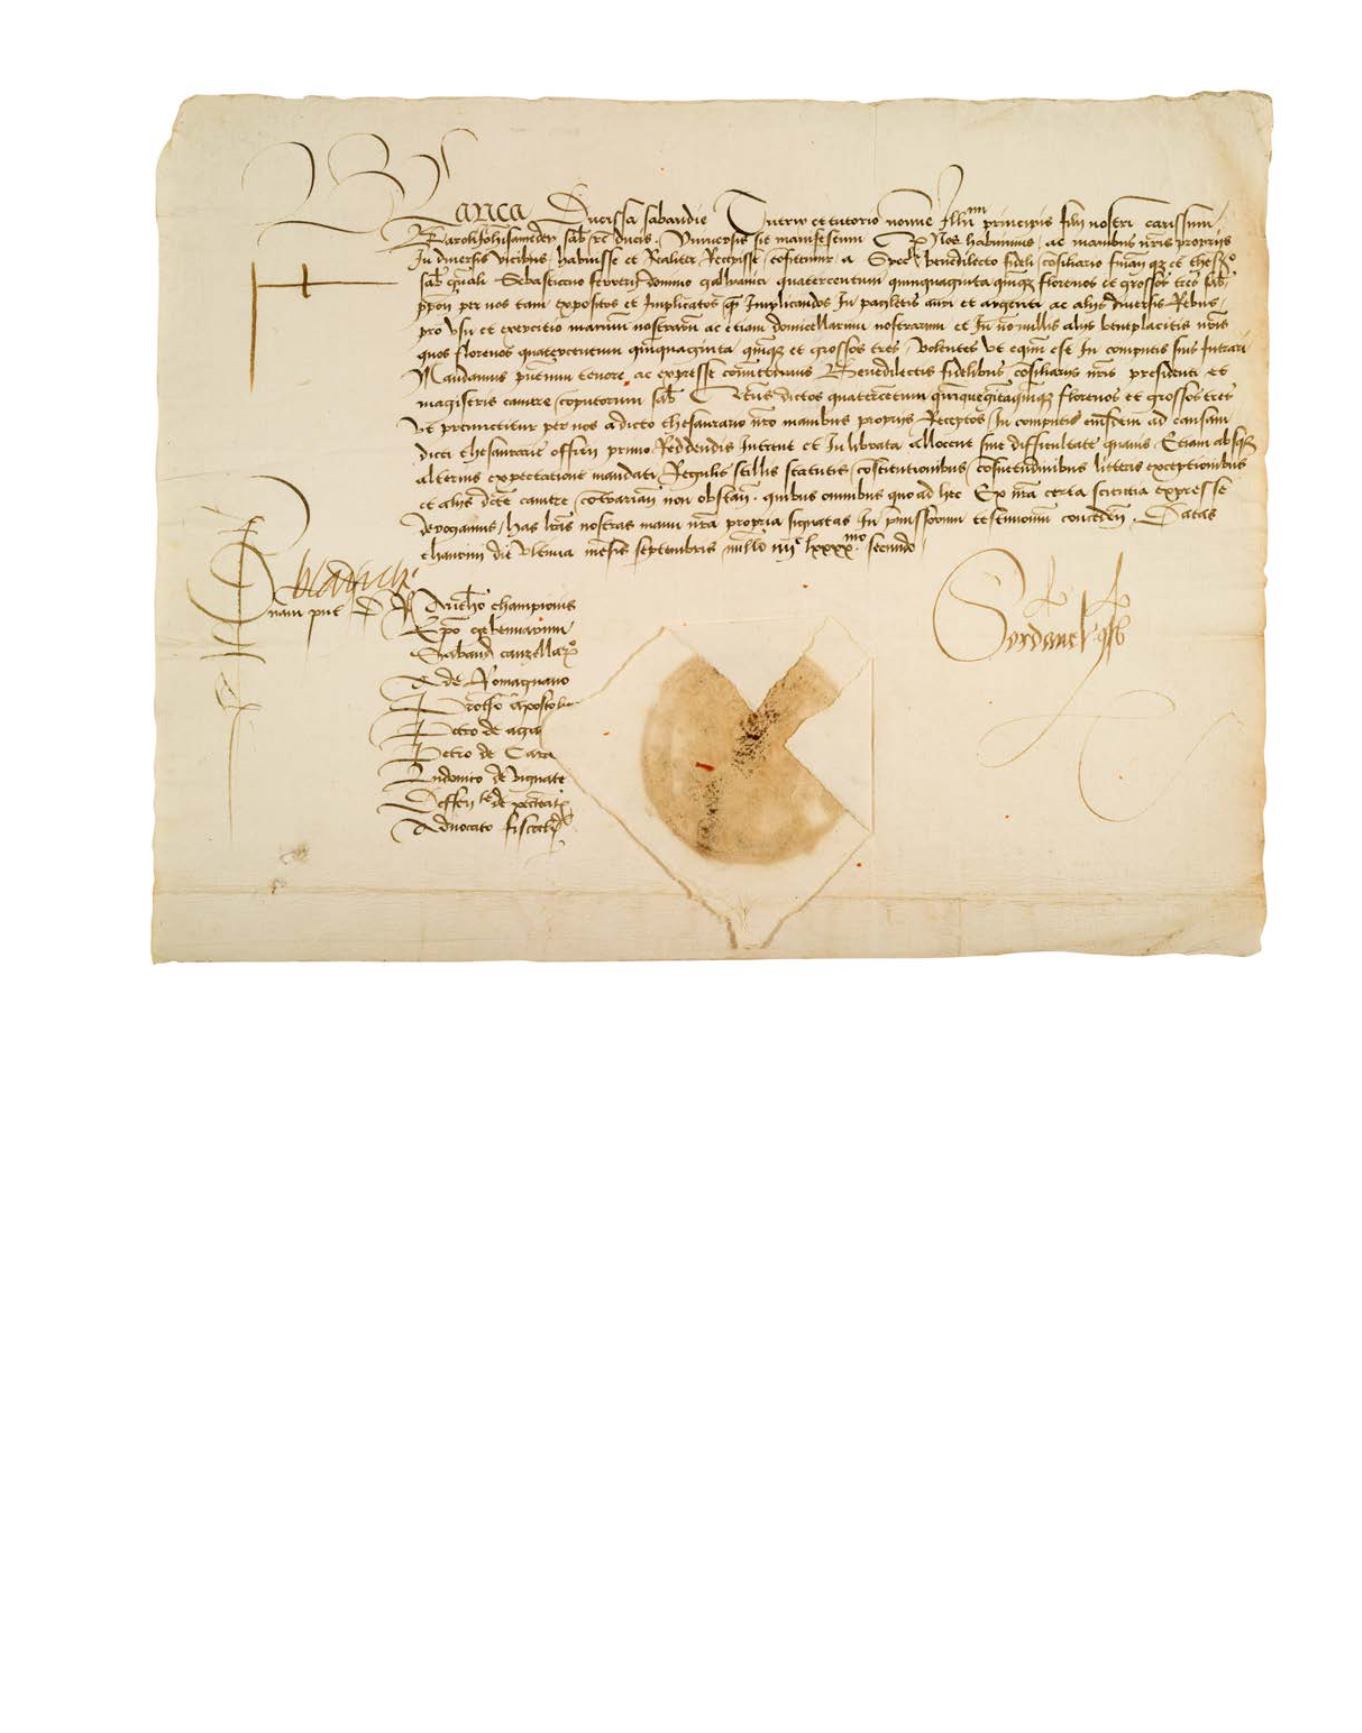 Blanca Ducissa sabaudie Tutrix et tutorio nomine Illmi principis filij nostri carissimi
Karoli Johis amedey sab rc ducis. Universis sit manifestum Q Nos habuimus, ac manibus nris proprijs
In diversis vicibus, habuisse et Realiter Recepisse, cofitemur, a Specli benedilecto fideli, cosiliario finan qz et thesro
sab gnali Sebastiano ferrerij domino galliamici quatercentum quinquaginta quinqz florenos et grossos tres sab,
ppon per nos tam, expositos et Implicatos q Implicandos In paciletis auri et argenti ac alijs diversis Rebus,
pro usu et exercitio manuum nostrarum ac etiam domicellarum nostrarum et In no nullis alijs beneplacitis nris
quos florenos quatercentum quinquaginta quinqz et grossos tres, volentes ut equm est In computis suis Intrari
Mandamus pntium tenore, ac expresse comittimus Benedilectis fidelibus cosiliarijs nris presidenti et
magistris camere, coputorum sab Quatenus dictos quatercetum quinquegitaquinqz florenos et grossos tres
Ut premictitur per nos a dicto thesaurario nro manibus proprijs Receptos, In computis eiusdem ad causam
dicti thesaurarie officij primo Reddendis Intrent et In librata allocent sine difficultate quavis. Etiam absqz
alterius expectatione mandati, Regulis stillis statutis, costitutionibus, cosuetudinibus litteris exceptionibus
et alijs dicte camere, cotrarian non obstan. quibus omnibus quo ad hec Ex nra certa scientia expresse
derogamus, has lras nostras manu nra propria signatas In pmissorum testimonium conceden. Datas
chanrij die ultima mesis septembris millo iiijc lxxxxmo secundo
blanche
Dnam pnt D Antho championis
Epo gebennarum
Sabaud canzellaro
A de Romagnano
Protho apostolico
Petro de agis
Petro de Cara
Ludovico de vignate
Deffen te de pectenatis
Advocato fiscali